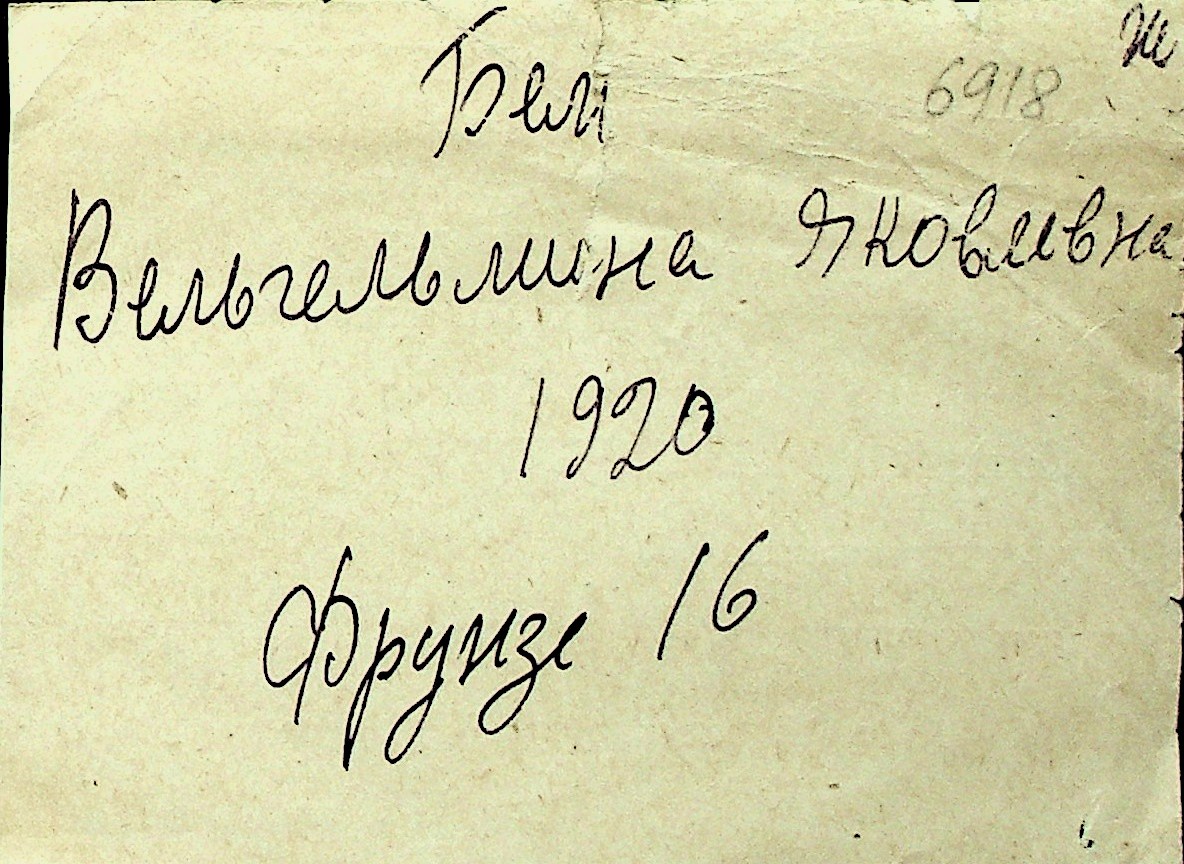 6918
Бел
Вельгельмина Яковлевна
1920
Фрунзе 16